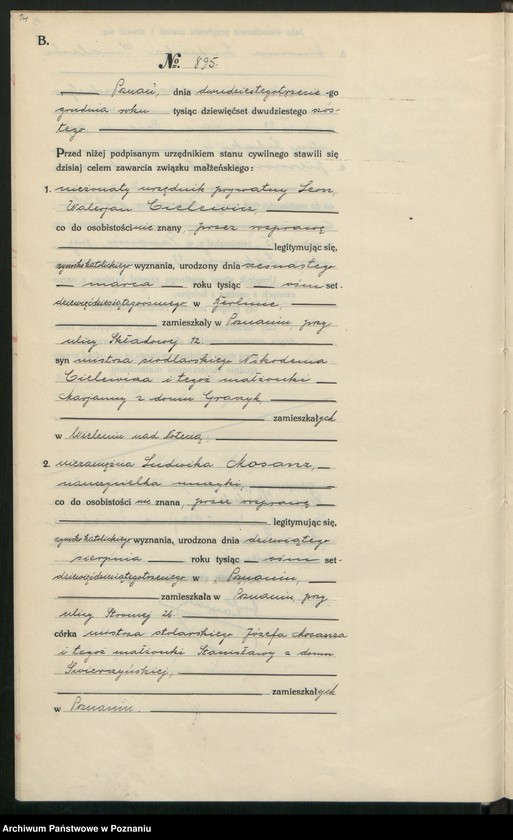 B.
No. 895.
Poznań, dnia dwudziestegotrzeciego -go
grudnia roku tysiąc dziewięćset dwudziestego szós-
tego.
Przed niżej podpisanym urzędnikiem stanu cywilnego stawili się
dzisiaj celem zawarcia związku małżeńskiego:
1. nieżonaty urzędnik prywatny Leon,
Walerjan Cielewicz,
co do osobistości nie znany, przez rozprawę
legitymując się,
rzymskokatolickiego wyznania, urodzony dnia szesnastego
marca roku tysiąc ośm set-
dziewięćdziesiątegoósmego w Berlinie,
zamieszkały w Poznaniu przy
ulicy Składowej 12
syn mistrza siodlarskiego Nikodema
Cielewicza i tegoż małżonki
Marjanny z domu Graczyk,
zamieszkałych
w Wieleniu nad Notecią;
2. niezamężna Ludwika Mosanz,
nauczycielka muzyki,
co do osobistości nie znana, przez rozprawę
legitymując się,
rzymskokatolickiego wyznania, urodzona dnia dziewiątego
sierpnia roku tysiąc ośm set-
dziewięćdziesiątegotrzeciego w Poznaniu,
zamieszkała w Poznaniu przy
ulicy 26
córka mistrza stolarskiego Józefa Mosanza
i tegoż małżonki Stanisławy z domu
Świerczyńskiej,
zamieszkałych
w Poznaniu.
Archiwum Państwowe w Poznaniu